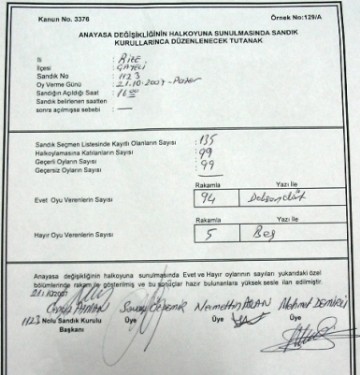 Kanun No. 3376
Örnek No:129/A
ANAYASA DEĞİŞİKLİĞİNİN HALKOYUNA SUNULMASINDA SANDIK
KURULLARINCA DÜZENLENECEK TUTANAK
İli : RİZE
İlçesi : ÇAYELİ
Sandık No : 1123
Oy Verme Günü : 21.10.2007 - Pazar
Sandığın Açıldığı Saat :
Sandık belirlenen saatten
sonra açılmışsa sebebi : —
Sandık Seçmen Listesinde Kayıtlı Olanların Sayısı : 135
Halkoylamasına Katılanların Sayısı : 99
Geçerli Oyların Sayısı : 99
Geçersiz Oyların Sayısı : —
Rakamla Yazı İle
Evet Oyu Verenlerin Sayısı 94 Doksandört
Rakamla Yazı İle
Hayır Oyu Verenlerin Sayısı 5 Beş
Anayasa değişikliğinin halkoyuna sunulmasında Evet ve Hayır oylarının sayıları yukarıdaki özel
bölümlerinde rakam ile gösterilmiş ve bu sonuçlar hazır bulunanlara yüksek sesle ilan edilmiştir.
21.10.2007
Mehmet DEMİRCİ
1123 Nolu Sandık Kurulu Üye Üye
Başkanı